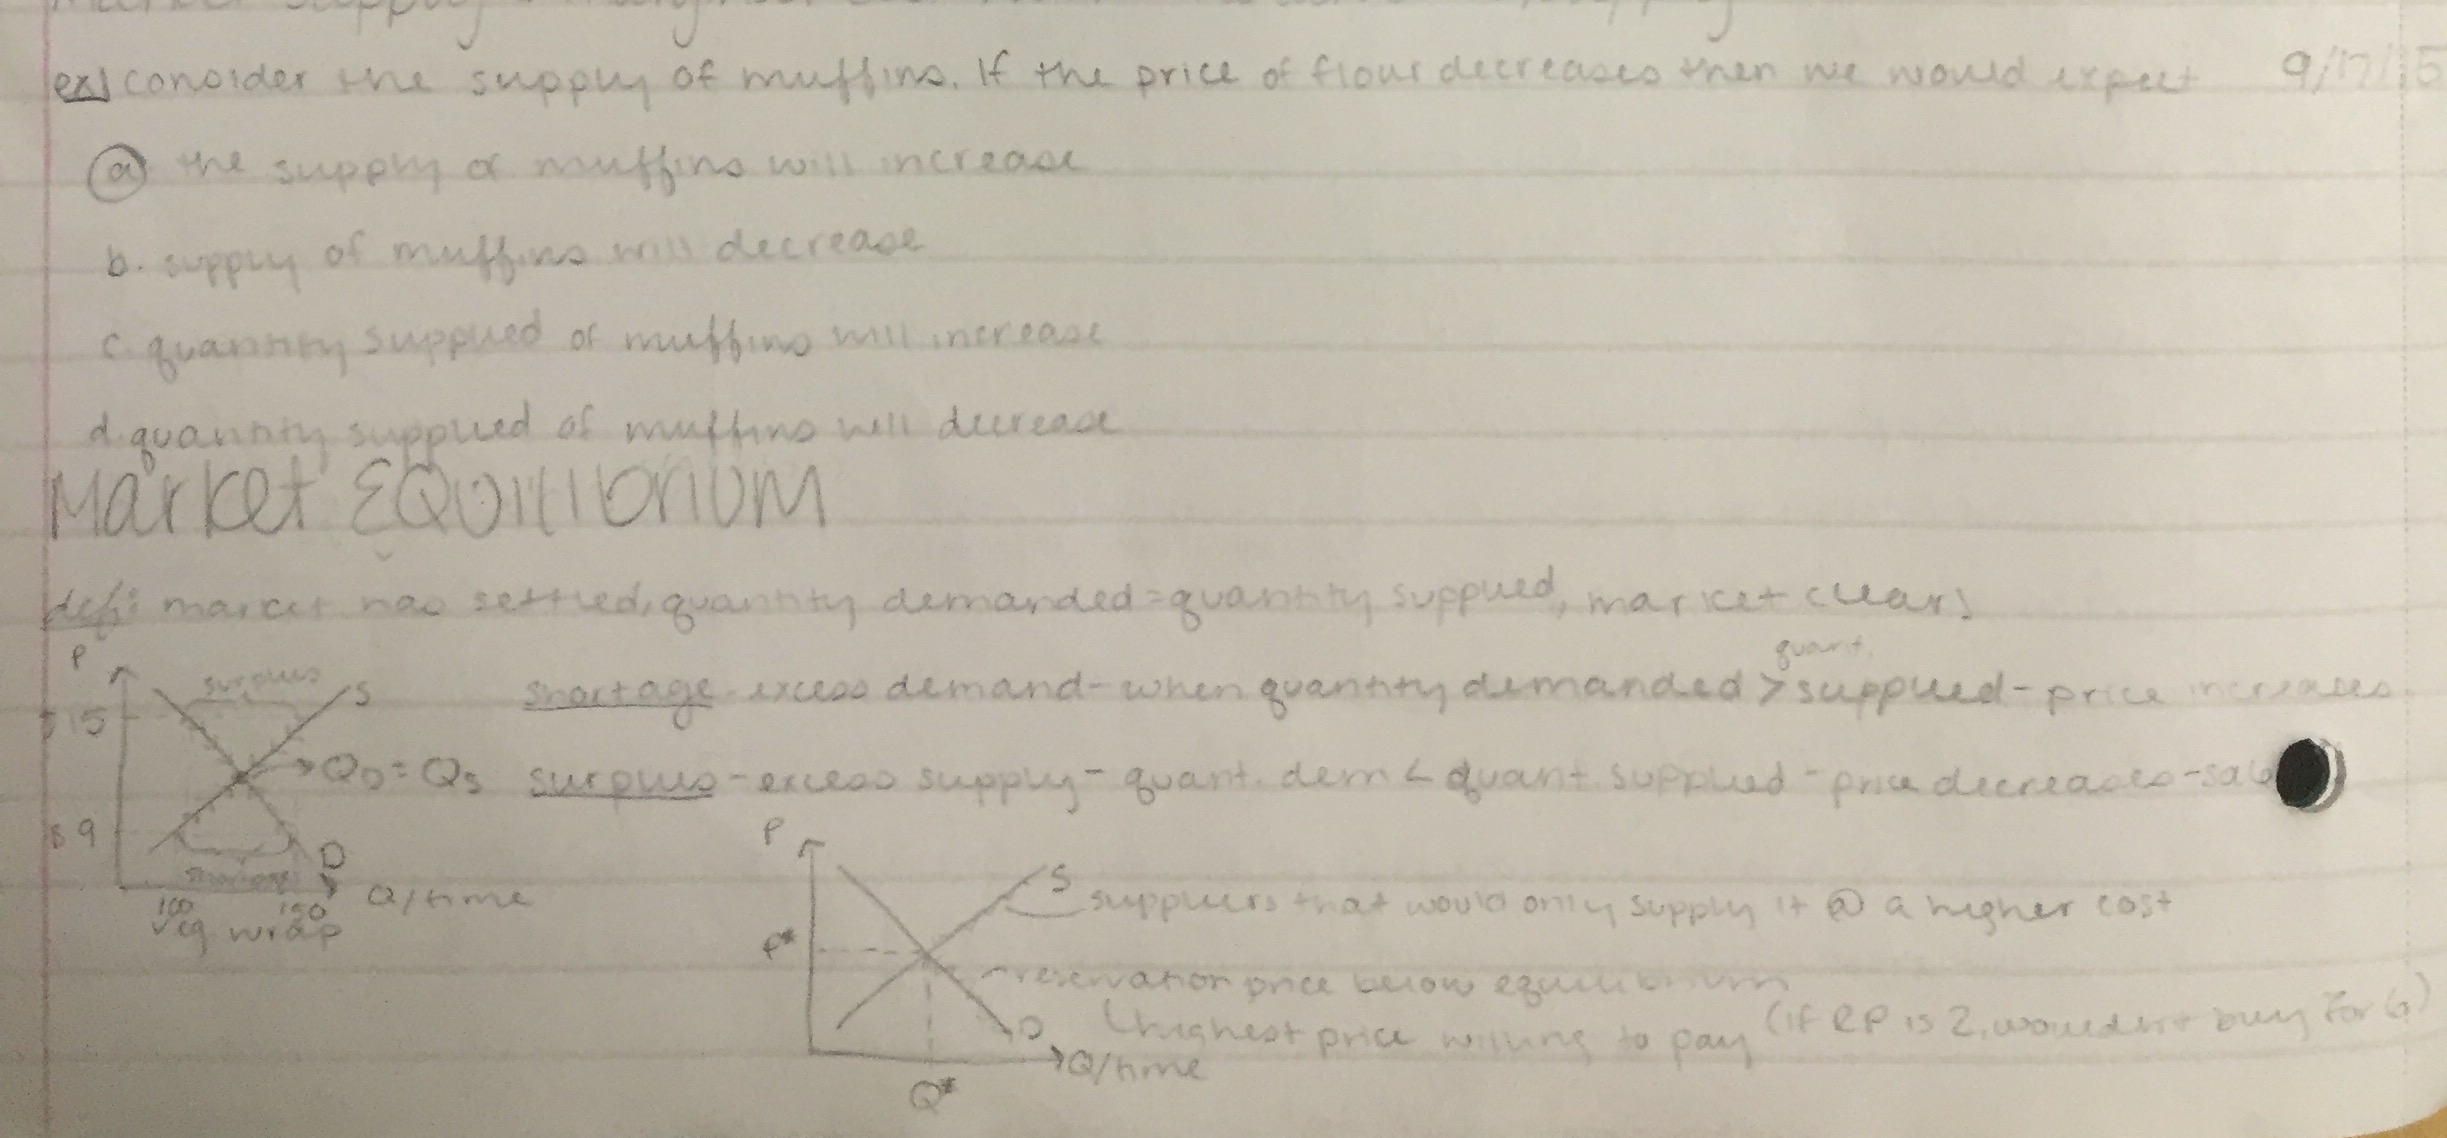 ex) consider the supply of muffins. If the price of flour decreases then we would expect 9/17/15
a the supply of muffins will increase
b. supply of muffins will decrease
c. quantity supplied of muffins will increase
d. quantity supplied of muffins will decrease
Market EQUilibrium
def: market has settled, quantity demanded = quantity supplied, market clears
P
surplus
S
quant.
shortage - excess demand - when quantity demanded > supplied - price increases
$15
QD = QS
surplus - excess supply - quant. dem < quant. supplied - price decreases -
$9
D
shortage
Q/time
100 150
veg wrap
P
S suppliers that would only supply it @ a higher cost
P*
reservation price below equilibrium
D
highest price willing to pay (if RP is 2, wouldn't buy for 6)
Q/time
Q*